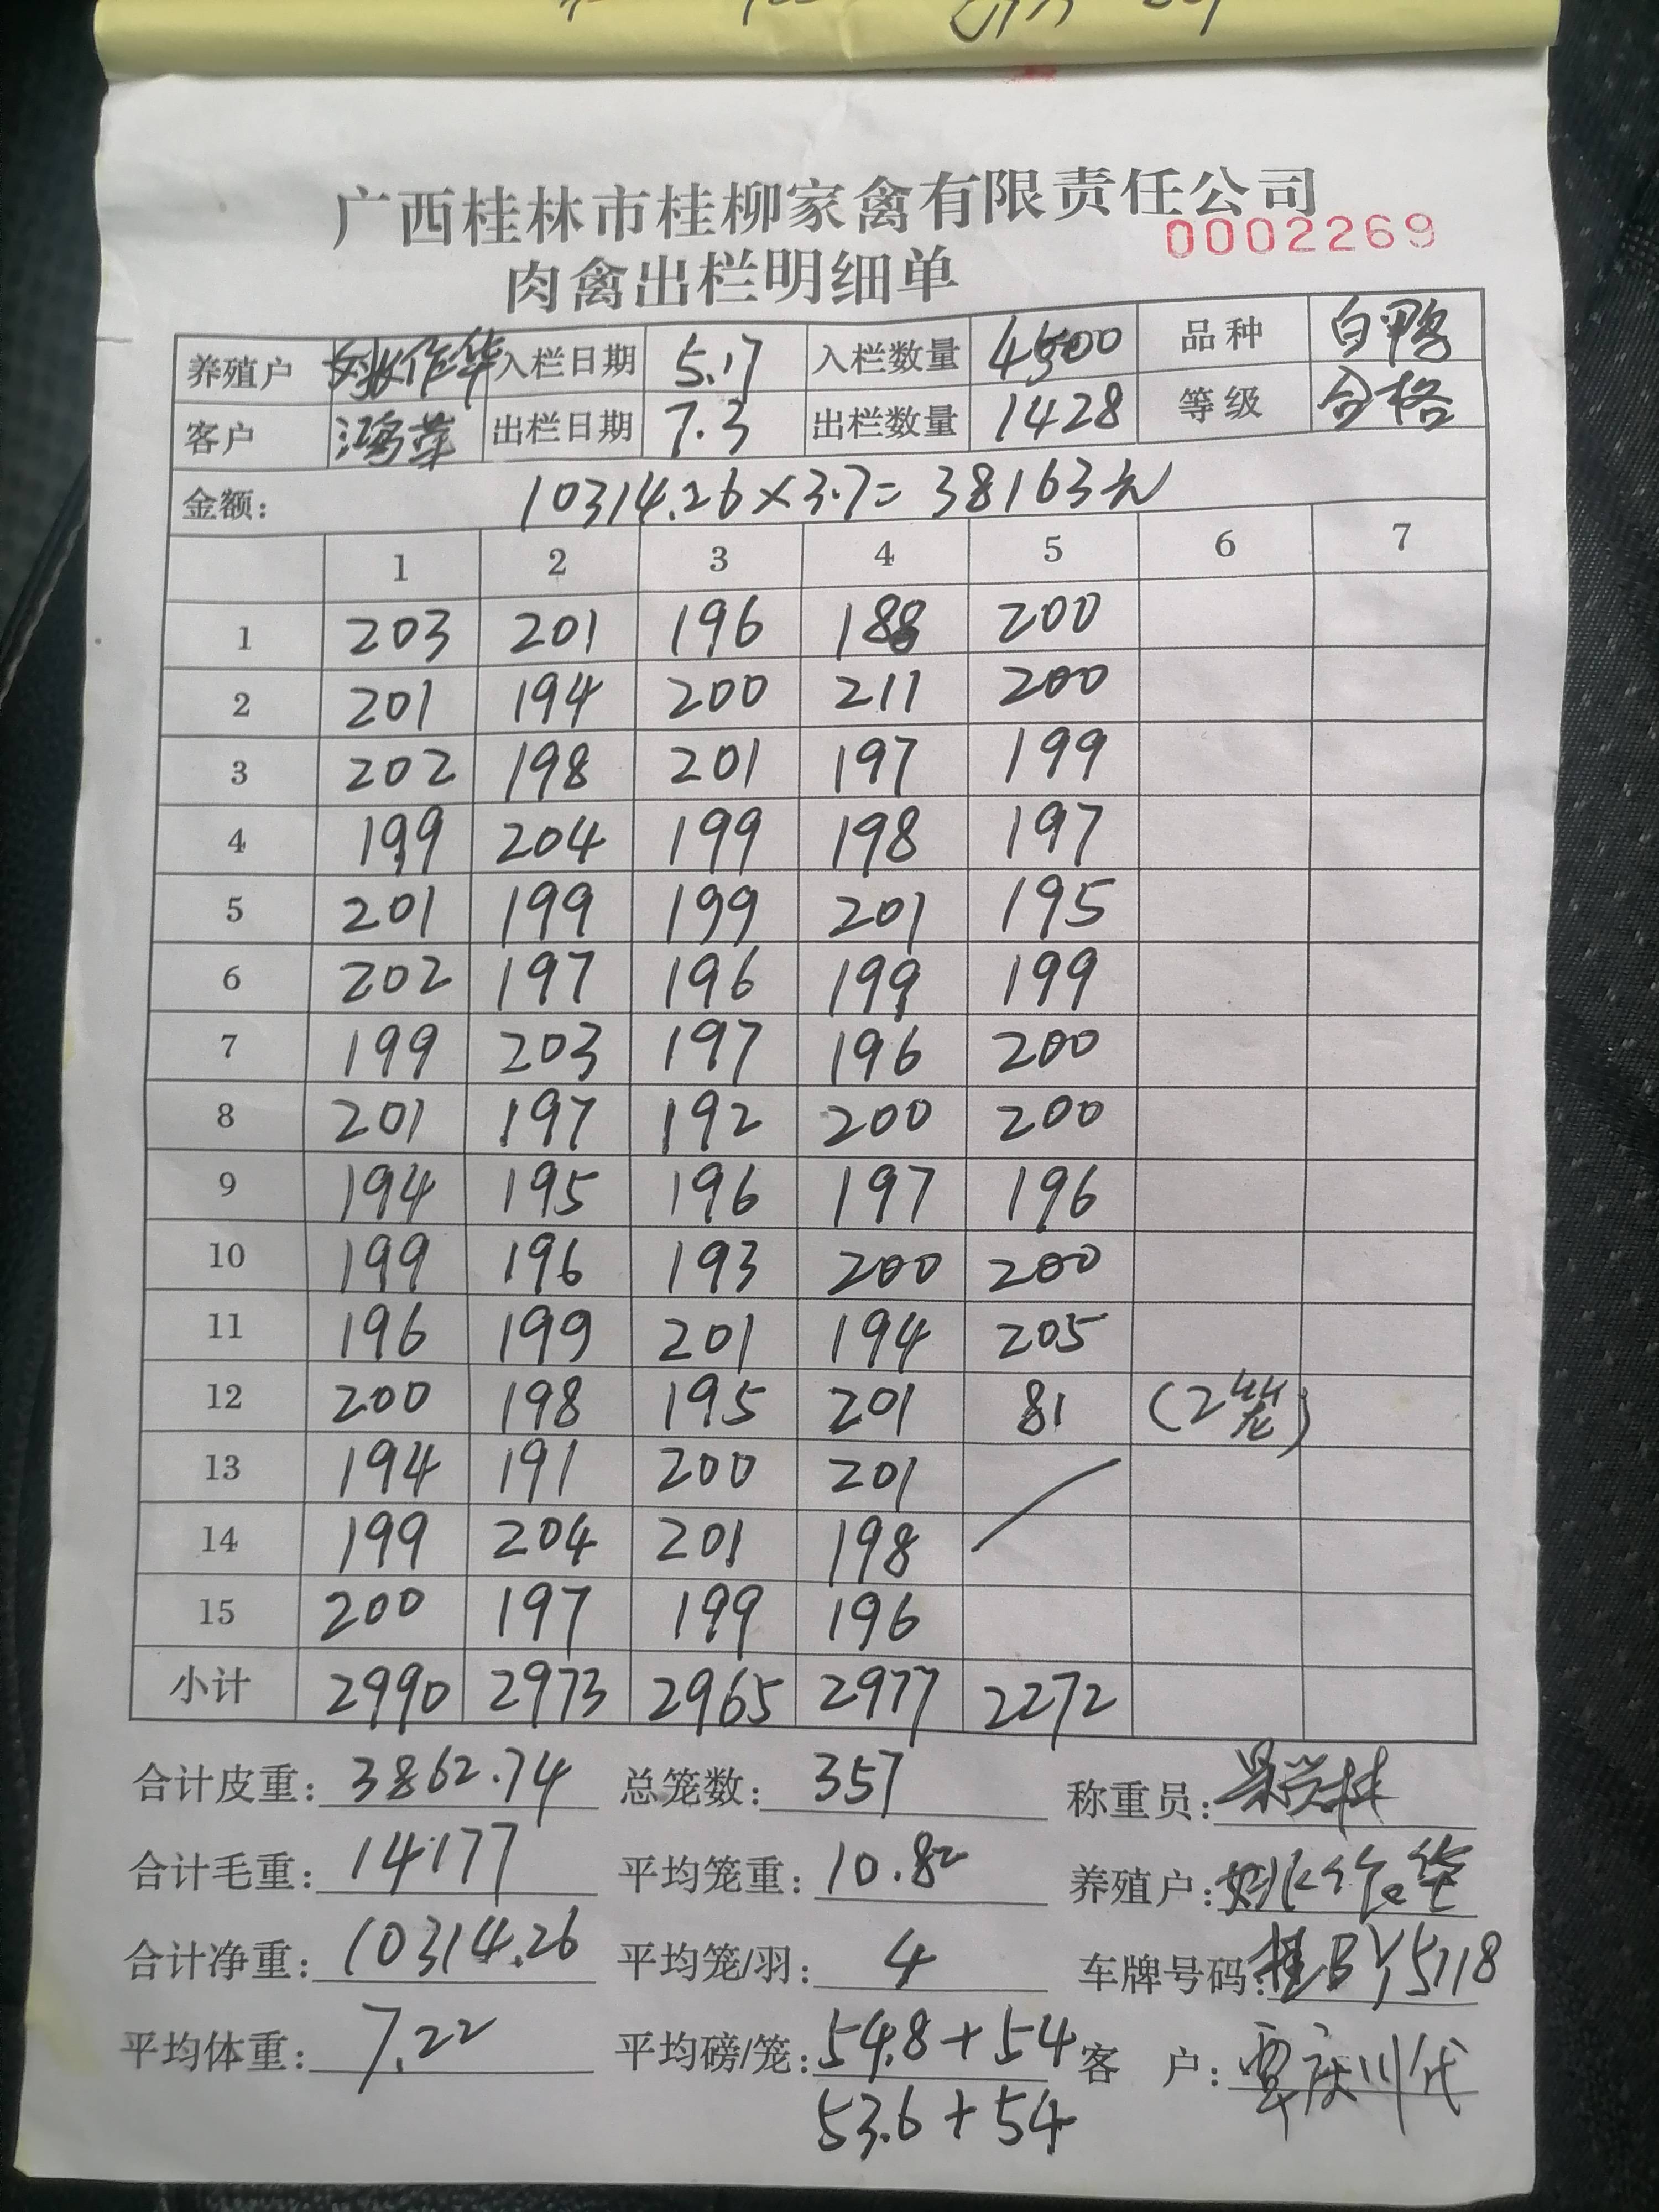 广西桂林市桂柳家禽有限责任公司
0002269
肉禽出栏明细单
养殖户 姚作华 入栏日期 5.17 入栏数量 4500 品种 白鸭
客户 鸿苹 出栏日期 7.3 出栏数量 1428 等级 合格
金额: 10314.26×3.7=38163元
1 2 3 4 5 6 7
1 203 201 196 188 200
2 201 194 200 211 200
3 202 198 201 197 199
4 199 204 199 198 197
5 201 199 199 201 195
6 202 197 196 199 199
7 199 203 197 196 200
8 201 197 192 200 200
9 194 195 196 197 196
10 199 196 193 200 200
11 196 199 201 194 205
12 200 198 195 201 81 (2笼)
13 194 191 200 201
14 199 204 201 198
15 200 197 199 196
小计 2990 2973 2965 2977 2272
合计皮重: 3862.74 总笼数: 357 称重员:
合计毛重: 14177 平均笼重: 10.82 养殖户: 姚作华
合计净重: 10314.26 平均笼/羽: 4 车牌号码: 桂BY5118
平均体重: 7.22 平均磅/笼: 54.8+54 客户: 覃庆川代
53.6+54